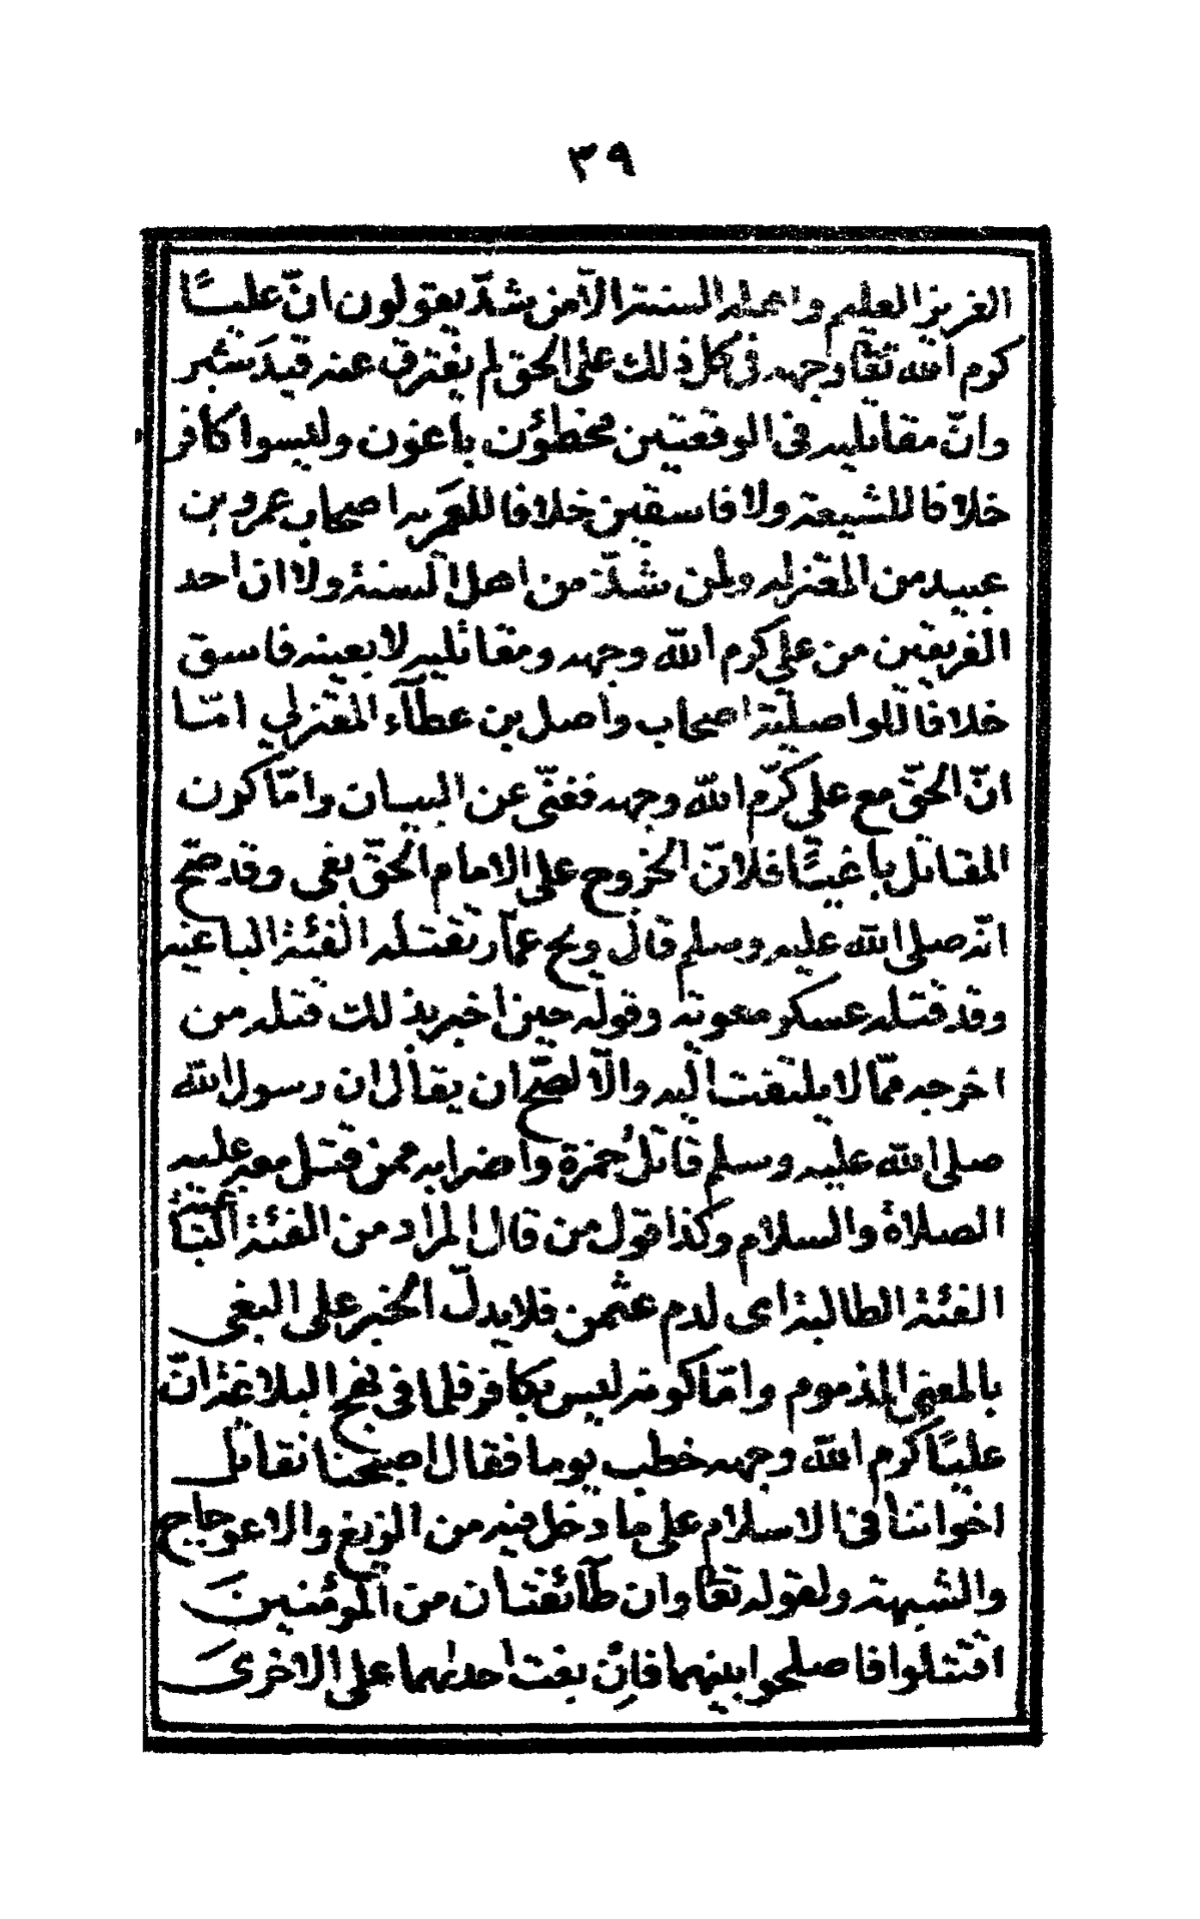 ٣٩
العزيز العليم واهل السنة الا من شذ يقولون انّ عليًّا
كرم الله تعا وجهه فى كل ذلك على الحق لم يفترق عنه قيدَ شبر
وانّ مقاتليه فى الوقعتين مخطؤن باغون وليسوا كافر
خلافا للشيعة ولا فاسقين خلافا للعَمرية اصحاب عمرو بن
عبيد من المعتزله ولمن شذّ من اهل السنة ولا ان احد
الفريقين من على كرم الله وجهه ومقاتليه لا بعينه فاسق
خلافا للواصلية اصحاب واصل بن عطآء المعتزلي امّا
انّ الحقّ مع على كرّم الله وجهه فغنّى عن البيان وامّا كون
المقاتل باغيًا فلانّ الخروج على الامام الحقّ بغى وقد صحّ
انّه صلى الله عليه وسلم قال ويح عمّار تقتله الفئة الباغيه
وقد قتله عسكر معوية وقوله حين اخبر بذلك قتله من
اخرجه ممّا لا يلتفت اليه والّا لصحّ ان يقال ان رسول الله
صلى الله عليه وسلم قاتل حُمزة واضرابه ممن قتل معه عليه
الصلاة والسلام وكذا قول من قال المراد من الفئة الباغية
الفئة الطالبة اى لدم عثمن فلا يدلّ الخبر على البغى
بالمعنى المذموم وامّا كونه ليس بكافر فلما فى نهج البلاغة انّ
عليًا كرم الله وجهه خطب يوما فقال اصبحنا نقاتل
اخواننا فى الاسلام على ما دخل فيه من الزيغ والاعوجاج
والشبهة ولقوله تعا وان طآئفتان من المؤمنينَ
اقتتلوا فاصلحوا بينهما فاِن بغت احديهما على الاخرىَ